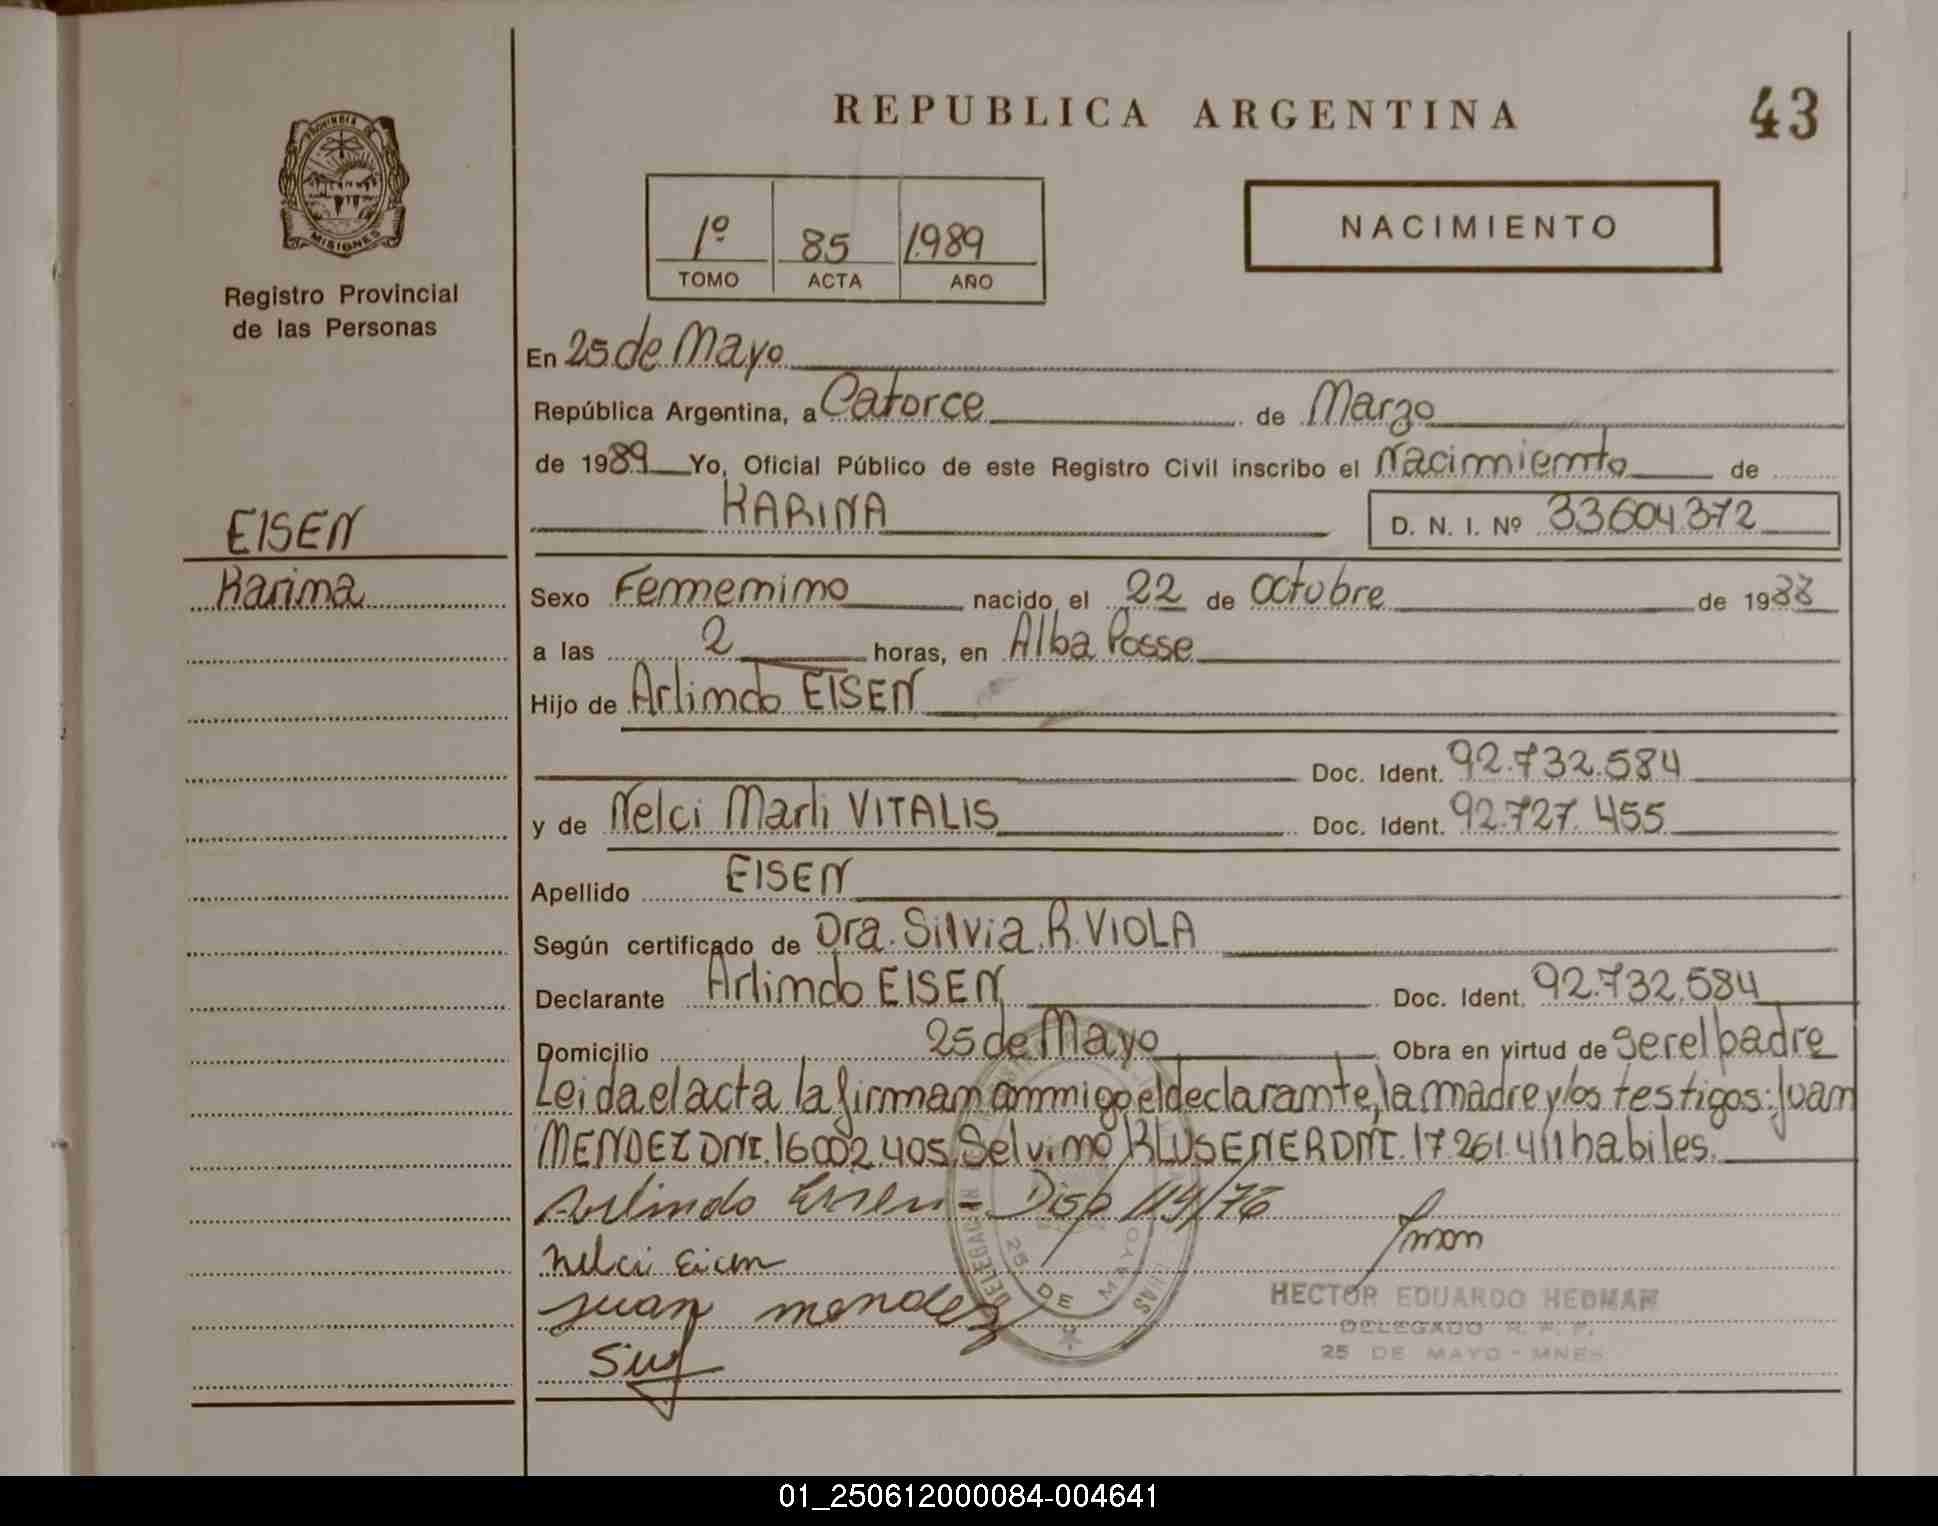 REPUBLICA ARGENTINA
43
PROVINCIA DE
MISIONES
Registro Provincial
de las Personas
1º 85 1989
TOMO ACTA AÑO
NACIMIENTO
En 25 de Mayo
República Argentina, a Catorce de Marzo
de 1989 Yo, Oficial Público de este Registro Civil inscribo el Nacimiento de
KARINA D. N. I. Nº 33604.372
EISEN
Karina
Sexo Femenino nacido el 22 de octubre de 1988
a las 2 horas, en Alba Posse
Hijo de Arlindo EISEN
Doc. Ident. 92.732.584
y de Nelci Marli VITALIS Doc. Ident. 92.727.455
Apellido EISEN
Según certificado de Dra. Silvia R. VIOLA
Declarante Arlindo EISEN Doc. Ident. 92.732.584
Domicilio 25 de Mayo Obra en virtud de ser el padre
Leida el acta la firman conmigo el declarante, la madre y los testigos: Juan
MENDEZ DNI. 16002.405, Selvino KLUSENER DNI. 17.261.411 habiles.
Arlindo Eisen - Disp 119/76
Nelci Eisen
Juan mendez
25 DE MAYO
HECTOR EDUARDO HEDMAN
DELEGADO R. P. P.
25 DE MAYO - MNES
01_250612000084-004641